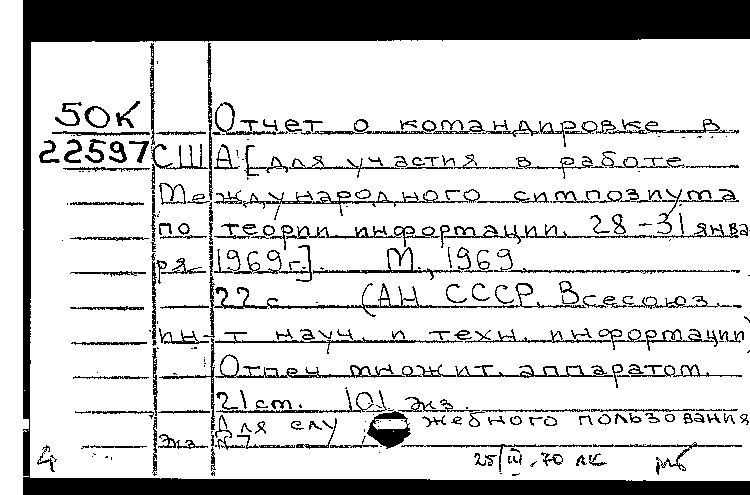 50К Отчет о командировке в
22597 США: [для участия в работе
Международного симпозиума
по теории информации. 28-31 янва
ря 1969 г.]. М., 1969.
22 с. (АН СССР. Всесоюз.
ин-т науч. и техн. информации)
Отпеч. множит. аппаратом.
21 ст. 101 экз.
Для слу жебного пользования
экз. №7
25/III.70